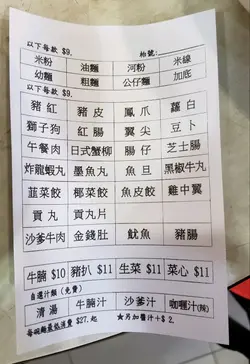 以下每款 $9.　　枱號:
米粉 油麵 河粉 米線
幼麵 粗麵 公仔麵 加底
以下每款 $9.
豬紅 豬皮 鳳爪 蘿白
獅子狗 紅腸 翼尖 豆卜
午餐肉 日式蟹柳 腸仔 芝士腸
炸龍蝦丸 墨魚丸 魚旦 黑椒牛丸
韮菜餃 椰菜餃 魚皮餃 雞中翼
貢丸 貢丸片
沙爹牛肉 金錢肚 魷魚 豬腸
牛腩 $10 豬扒 $11 生菜 $11 菜心 $11
自選汁類 (免費)
清湯 牛腩汁 沙爹汁 咖喱汁(辣)
每碗麵最低消費 $27.起 ★另加醬汁+$2.